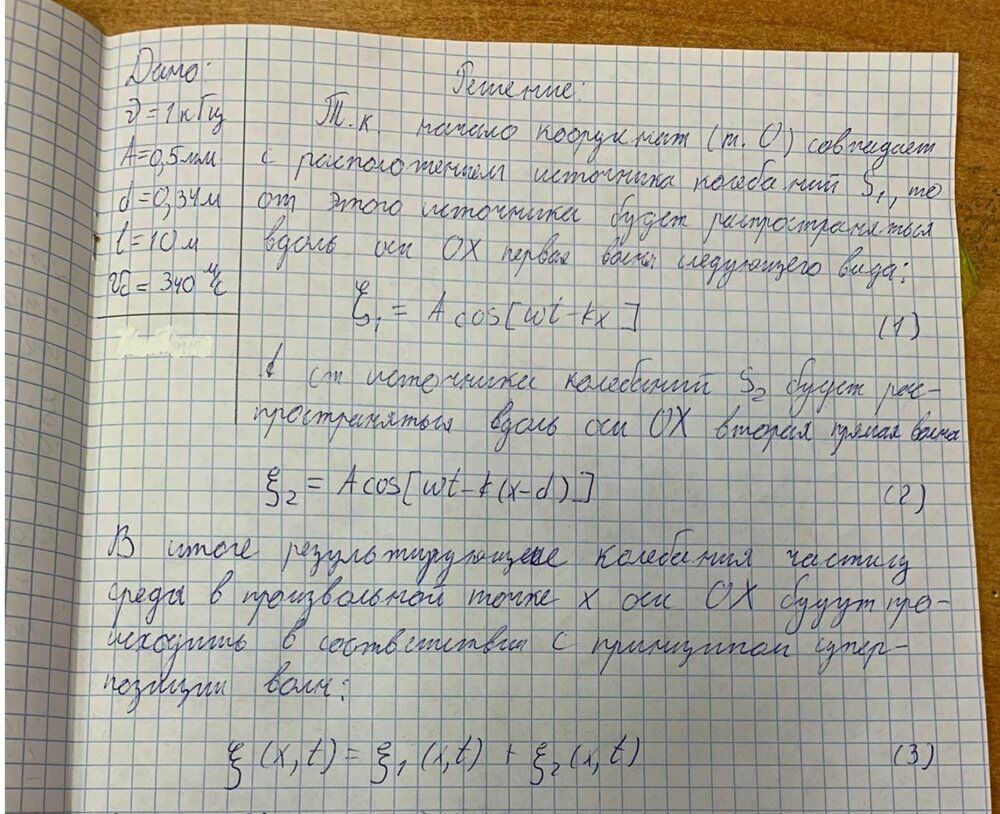 Дано:
ν = 1 кГц
A = 0,5 мм
d = 0,34 м
l = 10 м
Vc = 340 м/с
Решение:
Т.к. начало координат (т. О) совпадает
с расположением источника колебаний S₁, то
от этого источника будет распространяться
вдоль оси OX первая волна следующего вида:
ξ₁ = A cos[ωt - kx] (1)
А от источника колебаний S₂ будет рас-
пространяться вдоль оси OX вторая прямая волна
ξ₂ = A cos[ωt - k(x-d)] (2)
В итоге результирующие колебания частиц
среды в произвольной точке x оси OX будут про-
исходить в соответствии с принципом супер-
позиции волн:
ξ(x,t) = ξ₁(x,t) + ξ₂(x,t) (3)